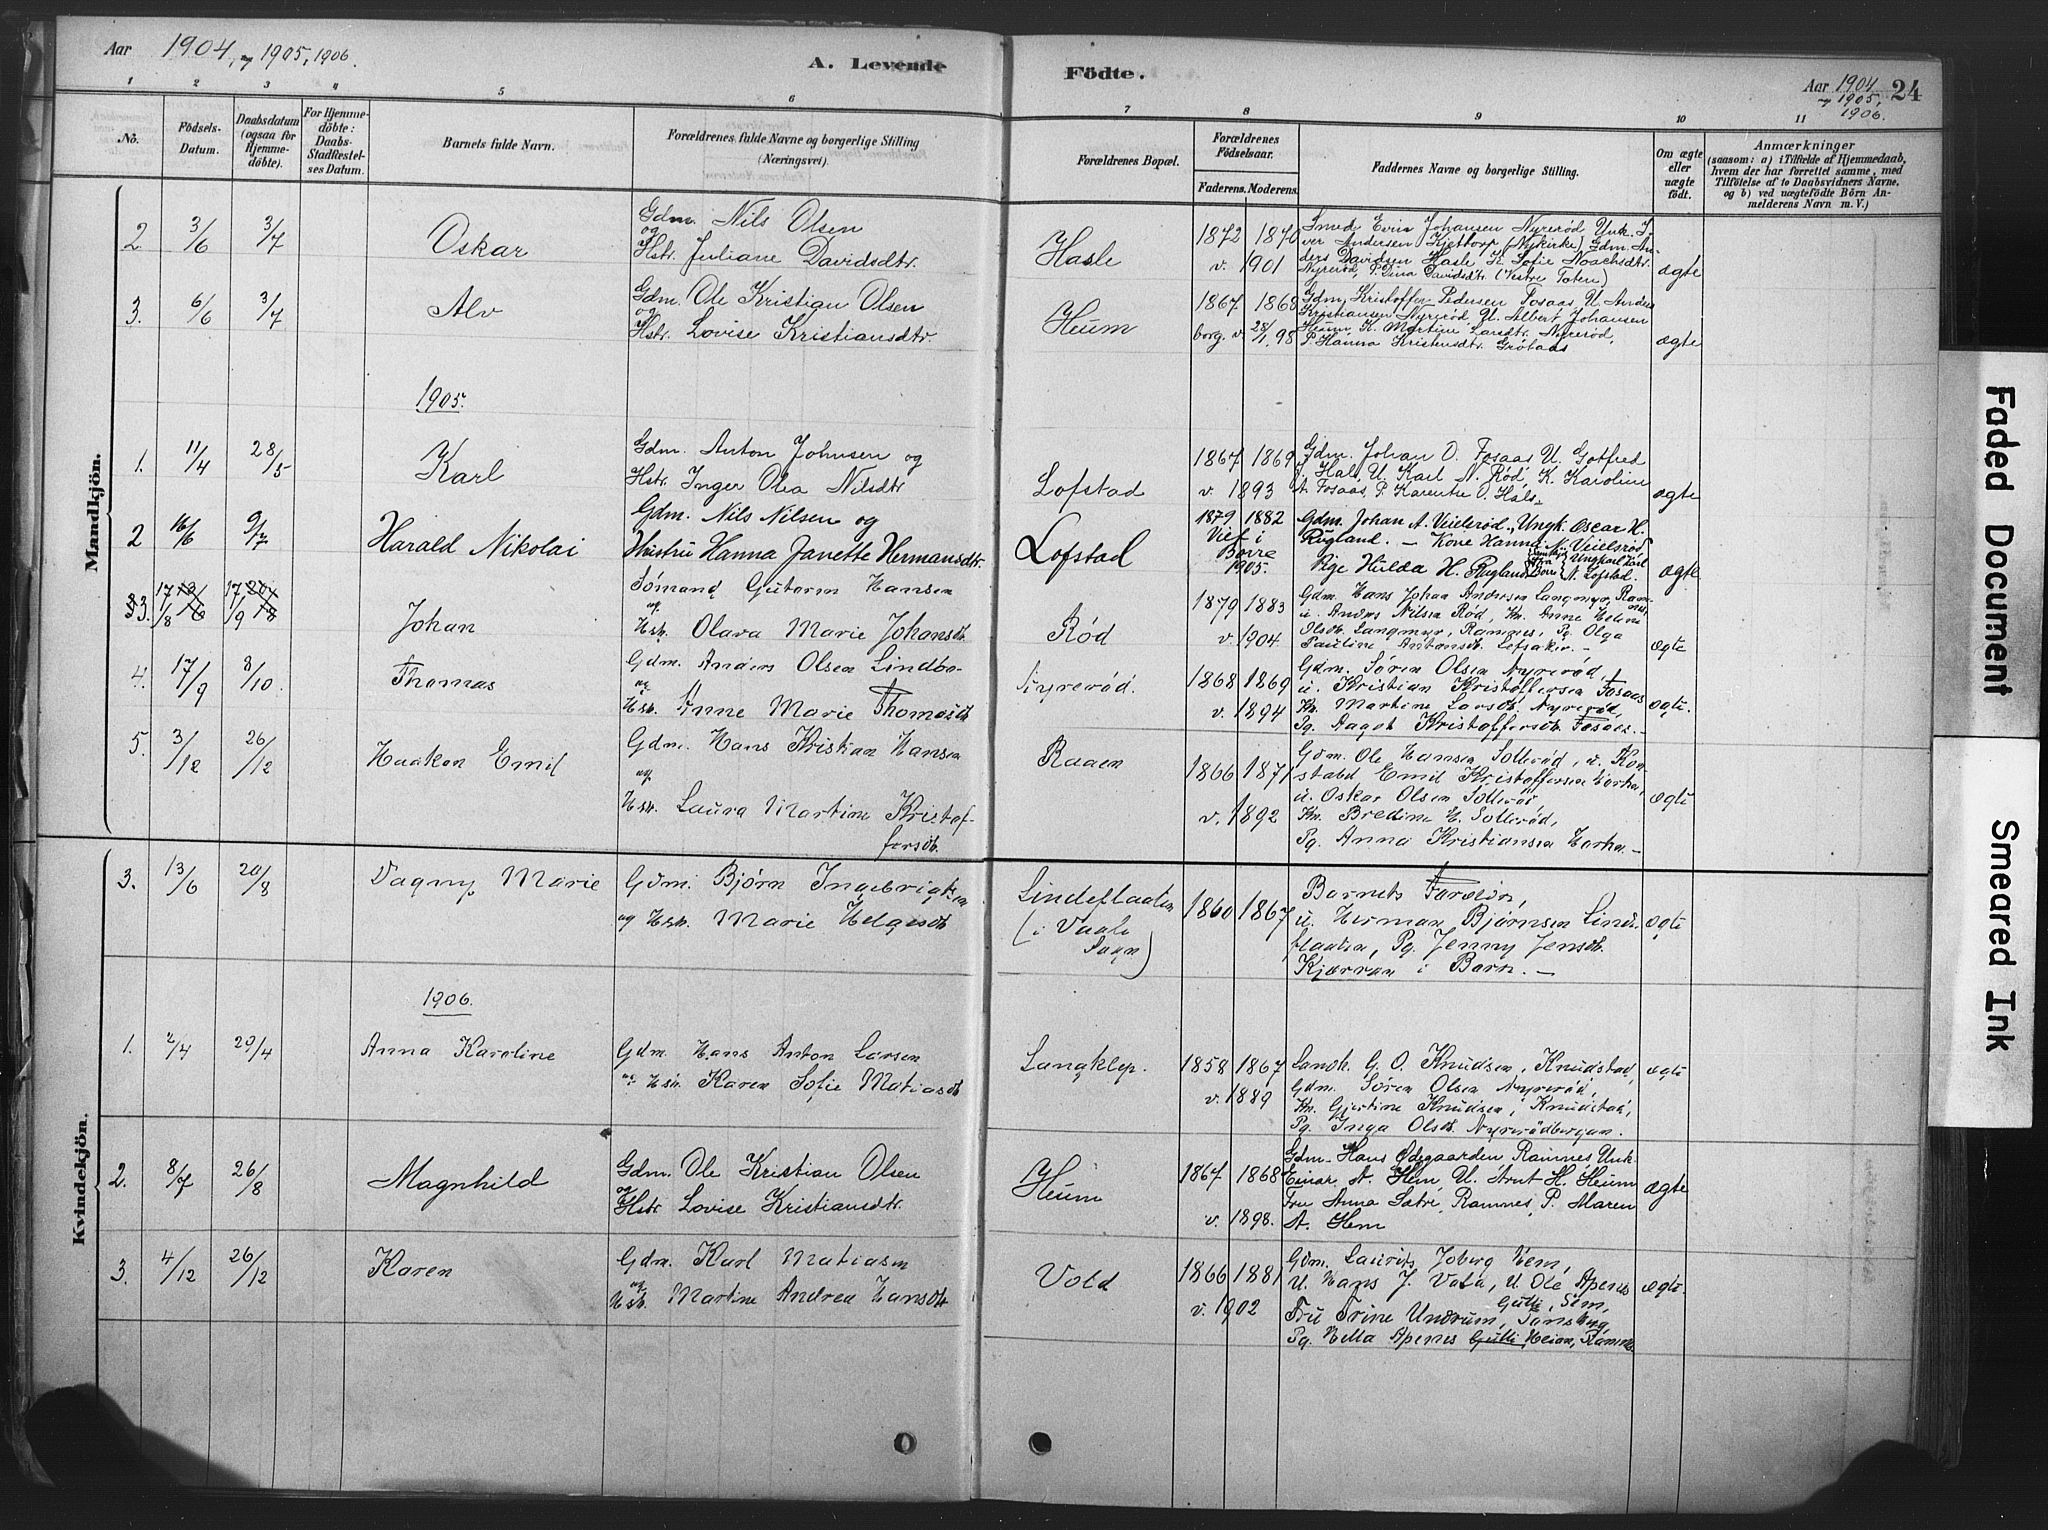 Aar 1904, og 1905, 1906.
A. Levende Födte.
Aar 1904 og 1905, 1906.
24
1 2 3 4 5 6 7 8 9 10 11
No.
Födsels-Datum.
Daabsdatum (ogsaa for Hjemme-döbte).
For Hjemme-döbte: Daabs-Stadfæstel-ses Datum.
Barnets fulde Navn.
Forældrenes fulde Navne og borgerlige Stilling (Næringsvei).
Forældrenes Bopæl.
Forældrenes Födselsaar.
Faderens. Moderens.
Faddernes Navne og borgerlige Stilling.
Om ægte eller uægte födt.
Anmærkninger
(saasom: a) i Tilfælde af Hjemmedaab,
hvem der har forrettet samme, med
Tilföielse af to Daabsvidners Navne,
og b) ved uægtefödte Börn An-
melderens Navn m. V.)
Mandkjön.
2 3/6 3/7 Oskar
Gdm. Nils Olsen
og
Hstr. Juliane Davidsdtr.
Hasle
1872 1876
v. 1901
Smed Evin Johansen Nyrerød Unk. I-
ver Andersen Kjettorp (Nykirke) Gdm. An-
ders Davidsen Hasle K. Sofie Noachsdtr.
Nyrerød P. Dina Davidsdtr. (Vestre Toten)
ægte
3. 6/6 3/7 Alv
Gdm. Ole Kristian Olsen
og
Hstr. Lovise Kristiansdtr.
Heum
1867 1868
borg. v. 28/1 98
Gdm. Kristoffer Pedersen Fosaas U. Anders
Kristiansen Nyrerød U. Albert Johansen
Heum K. Martine Larsdtr. Nyrerød,
P. Hanna Kristensdtr. Grötaas
ægte
1905.
1. 11/4 28/5 Karl
Gdm. Anton Johnsen og
Hstr. Inger Olea Nilsdtr
Lofstad
1867 1869
v. 1893
Gdm. Johan O. Fosaas U. Gotfred
J. Hals, U. Karl N. Rød, K. Karoline
A. Fosaas, P. Karentse O. Hals.
ægte
2 16/6 9/7 Harald Nikolai
Gdm. Nils Nilsen og
Hustru Hanna Janette Hermansdtr.
Lofstad
1879 1882
Viet i
Borre
1905.
Gdm. Johan A. Veielsrød, Ungk. Oscar H.
Rugland. – Kone Hanna N. Veielsrød
Pige Hulda H. Rugland Borre Ungkarl Karl
N. Lofstad.
ægte
3. 17/8 17/9 Johan
Sömand Gutorm Hansen
og
Hstr. Olava Marie Johansdtr.
Rød
1879 1883
v. 1904
Gdm. Hans Johan Andersen Langmyr, Ram-
nes, u. Anders Nilsen Rød, Kn. Anne Helene
Olsdtr. Langmyr, Ramnes, Pg. Olga
Pauline Antonsdtr. Lefsaker. –
ægte
4. 17/9 8/10. Thomas
Gdm. Anders Olsen Lindbo-
og
Hstr. Anne Marie Thomasdtr.
Nyrerød.
1868 1869
v. 1894
Gdm. Sören Olsen Nyrerød,
u. Kristian Kristoffersen Fosaas
Kn. Martine Larsdtr. Nyrerød,
Pg. Aagot Kristoffersdtr. Fosaas. –
ægte.
5. 3/12 26/12 Haakon Emil
Gdm. Hans Kristian Hansen
og
Hstr. Laura Martine Kristof-
fersdtr.
Raaen
1866 1871
v. 1892
Gdm. Ole Hansen Sollerød, u. Kon-
stabel Emil Kristoffersen Horten,
u. Oskar Olsen Sollerød
Kn. Bredine H. Sollerød,
Pg. Anna Kristiansen Horten –
ægte
Kvindekjön.
3. 13/6 20/8 Dagny Marie
Gdm. Bjørn Ingebrigtsen
og Hstr. Marie Helgesdtr.
Lindeflaaten
(i Vaale
Sogn)
1860 1867
Barnets Forældre,
u. Herman Bjørnsen Linde-
flaaten, Pg. Jenny Jensdtr.
Kjærran i Borre. –
ægte
1906.
1. 2/4 29/4 Anna Karoline
Gdm. Hans Anton Larsen
og Hstr. Karen Sofie Matiasdtr
Langklep.
1858 1867
v. 1889
Landh. G. O. Knudsen, Knudstad,
Gdm. Sören Olsen Nyrerød,
Kn. Gjertine Knudsen, Knudstad,
Pg. Inga Olsdtr. Nyrerødbergan.
ægte
2. 8/7 26/8 Magnhild
Gdm. Ole Kristian Olsen
og
Hstr. Lovise Kristiansdtr.
Heum
1867 1868
v. 1898.
Gdm. Hans Ødegaarden Ramnes Unk.
Einar A. Hem, U. Arnt H. Heum
Fru Anna Sætre, Ramnes, P. Maren
A. Hem
ægte
3. 4/12 26/12 Karen
Gdm. Karl Matiasen
og
Hstr. Martine Andrea Hansdtr
Vold
1866 1881
v. 1902
Gdm. Laurits Joberg Hem,
U. Hans J. Vold, U. Ole Apenes
Gulli, Sem,
Fru Trine Undrum, Tønsberg,
Pg. Hella Apenes Gulli Heian, Ramnes
ægte.
Faded Document
Smeared Ink